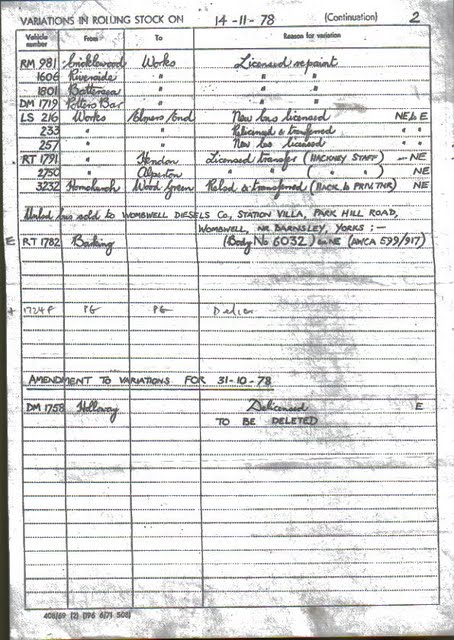 VARIATIONS IN ROLLING STOCK ON 14-11-78 (Continuation) 2
Vehicle number From To Reason for variation
RM 981 Cricklewood Works Licensed repaint
1606 Riverside " " "
1801 Battersea " " "
DM 1719 Potters Bar " " "
LS 216 Works Elmers End New bus licensed NE & E
233 " " Relicensed & transferred " "
257 " " New bus licensed " "
RT 1791 Hendon Licensed transfer (HACKNEY STAFF) NE
2750 Alperton " " ( " " ) NE
3232 Hornchurch Wood Green Relsd & transferred (BACK to PRIV. TNR) NE
Unlsd bus sold to WOMBWELL DIESELS Co, STATION VILLA, PARK HILL ROAD,
WOMBWELL, NR BARNSLEY, YORKS :-
E RT 1782 Barking (Body No 6032) NE (AMCA 599/917)
+ 1724P PG PG
AMENDMENT TO VARIATIONS FOR 31-10-78
DM 1758 Holloway Delicensed E
TO BE DELETED